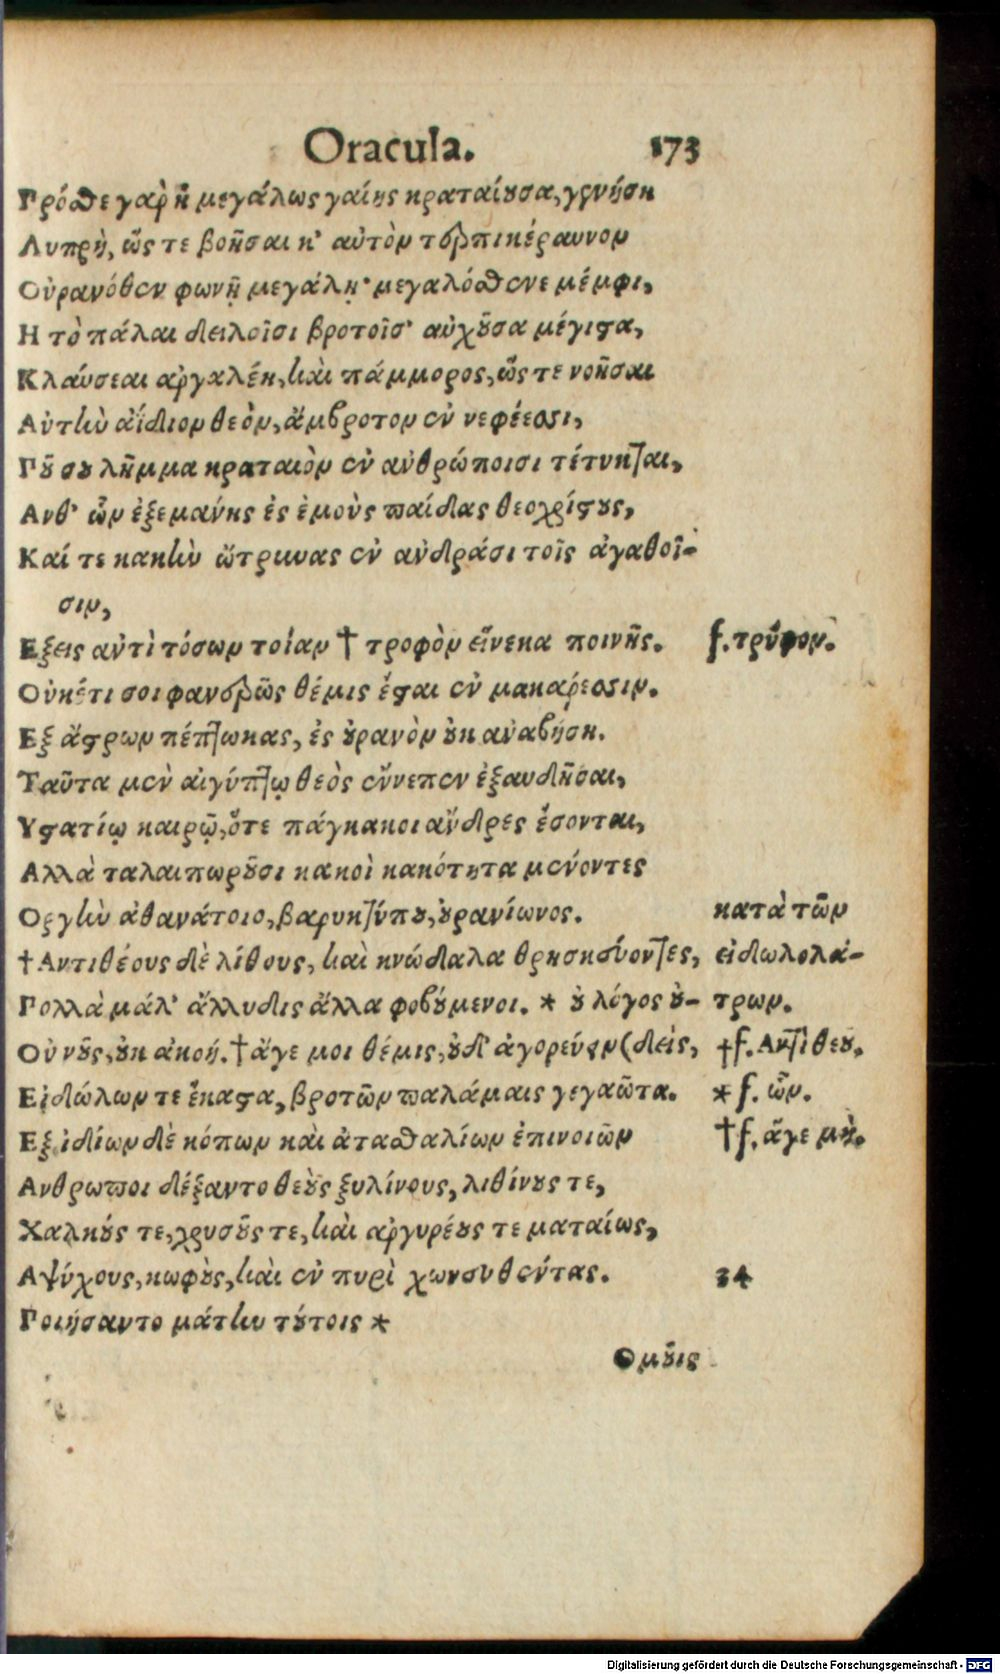 Oracula. 173
Πρόσθε γὰρ ἡ μεγάλως γαίης κραταίουσα, γενήσῃ
Λυπρὴ, ὥς τε βοῆσαι κ' αὐτὸν τερπικέραυνον
Οὐρανόθεν φωνῇ μεγάλῃ· μεγαλόσθενε μέμφι,
Η τὸ πάλαι δειλοῖσι βροτοῖσ' αὐχοῦσα μέγιστα,
Κλαύσεαι ἀργαλέη, καὶ πάμμορος, ὥς τε νοῆσαι
Αὐτὴν ἀΐδιον θεὸν, ἄμβροτον ἐν νεφέεσσι,
Ποῦ σου λῆμμα κραταιὸν ἐν ἀνθρώποισι τέτυκται,
Ανθ' ὧν ἐξεμάνης ἐς ἐμοὺς παίδας θεοχρίστους,
Καί τε κακὴν ὤτρυνας ἐν ἀνδράσι τοῖς ἀγαθοῖ-
σιν,
Εξεις ἀντὶ τόσων τοίαν † τροφὸν εἵνεκα ποινῆς. f. τρύφον.
Οὐκέτι σοι φανερῶς θέμις ἔσται ἐν μακάρεσσιν.
Εξ ἄστρων πέπτωκας, ἐς οὐρανὸν οὐκ ἀναβήσῃ.
Ταῦτα μὲν αἰγύπτῳ θεὸς ἔννεπεν ἐξαυδῆσαι,
Υστατίῳ καιρῷ, ὅτε πάγκακοι ἄνδρες ἔσονται,
Αλλὰ ταλαιπωροῦσι κακοὶ κακότητα μένοντες
Οργὴν ἀθανάτοιο, βαρυκτύπου, οὐρανίωνος. κατὰ τῶν
† Αντιθέους δὲ λίθους, καὶ κνώδαλα θρησκεύοντες, εἰδωλολα-
Πολλὰ μάλ' ἄλλυδις ἄλλα φοβούμενοι. * οὐ λόγος οὐ- τρων.
Οὐ νοῦς, οὐκ ἀκοή. † ἄγε μοι θέμις, οὐδ' ἀγορεύειν (δεὶς, † f. Αντὶ θεου.
Εἰδώλων τε ἕκαστα, βροτῶν παλάμαις γεγαῶτα. * f. ὧν.
Εξ ἰδίων δὲ κόπων καὶ ἀτασθαλίων ἐπινοιῶν † f. ἄγε μὴ.
Ανθρωποι δέξαντο θεοὺς ξυλίνους, λιθίνους τε,
Χαλκούς τε, χρυσοῦς τε, καὶ ἀργυρέους τε ματαίως,
Αψύχους, κωφοὺς, καὶ ἐν πυρὶ χωνευθέντας. 34
Ποιήσαντο μάτην τούτοις *
Θμοῦις
Digitalisierung gefördert durch die Deutsche Forschungsgemeinschaft - DFG